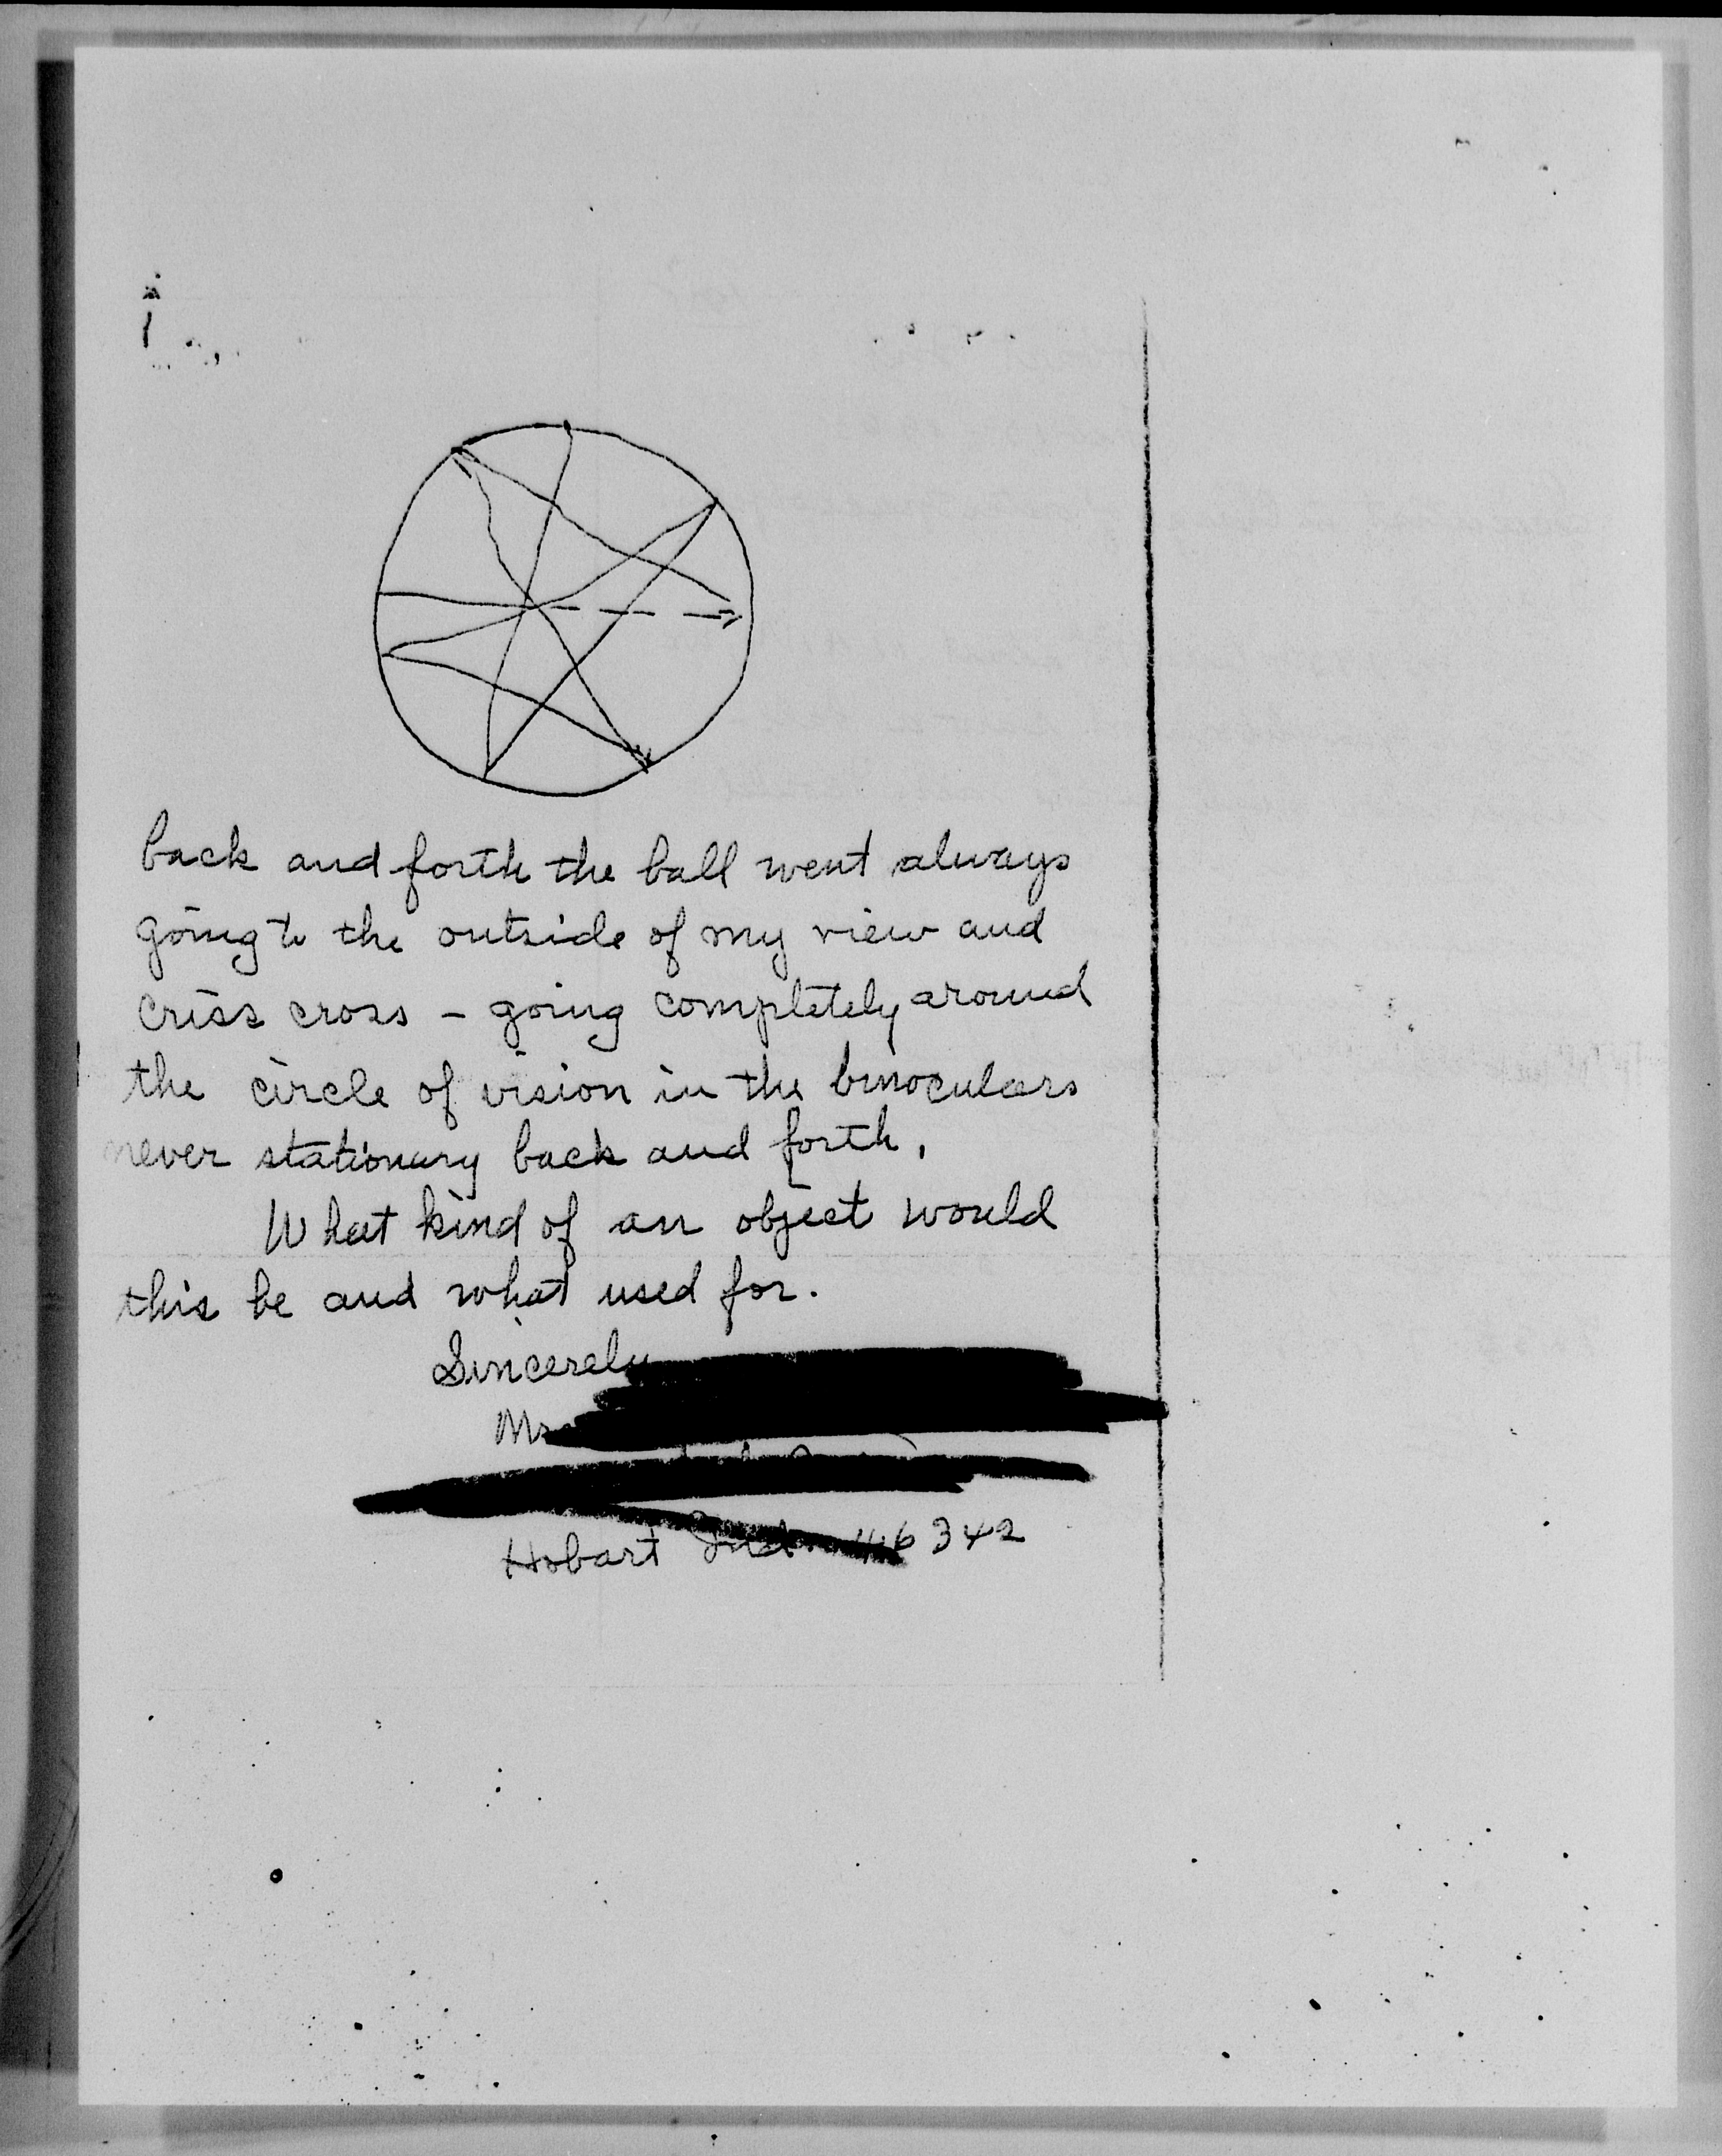 back and forth the ball went always
going to the outside of my view and
criss cross – going completely around
the circle of vision in the binoculars
never stationary back and forth.
What kind of an object would
this be and what used for.
Sincerely
Hobart Ind. 46342